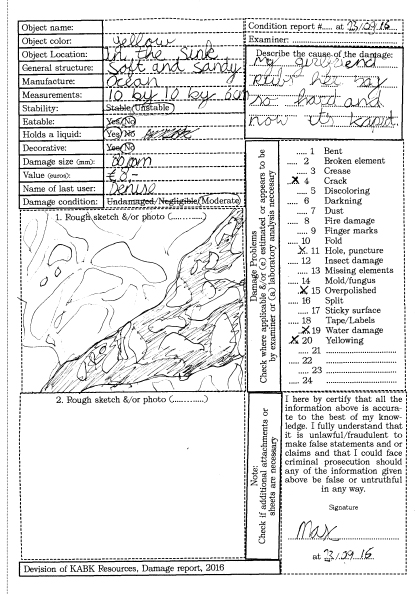 Object name:
Object color: yellow
Object Location: in the sink
General structure: Soft and sandy
Manufacture: Ocean
Measurements: 10 by 10 by
Stability: Stable/Unstable
Eatable: Yes/No
Holds a liquid: Yes/No
Decorative: Yes/No
Damage size (mm):
Value (euros): € 8,-
Name of last user: Denise
Damage condition: Undamaged/Negligible/Moderate
1. Rough sketch &/or photo (............)
2. Rough sketch &/or photo (............)
Devision of KABK Resources, Damage report, 2016
Condition report #..... at 23/09 16
Examiner:
Describe the cause of the damage:
My girlfriend
her
so hard and
now it's kaput
Damage Problems
Check where applicable &/or (e) estimated or appears to be
by examiner or (a) laboratory analysis necessary
..... 1 Bent
..... 2 Broken element
..... 3 Crease
X 4 Crack
..... 5 Discoloring
..... 6 Darkning
..... 7 Dust
..... 8 Fire damage
..... 9 Finger marks
..... 10 Fold
X 11 Hole, puncture
..... 12 Insect damage
..... 13 Missing elements
..... 14 Mold/fungus
X 15 Overpolished
..... 16 Split
..... 17 Sticky surface
..... 18 Tape/Labels
X 19 Water damage
X 20 Yellowing
..... 21 ..............................
..... 22 ..............................
..... 23 ..............................
..... 24 ..............................
Note:
Check if additional attachments or
sheets are necessary
I here by certify that all the
information above is accura-
te to the best of my know-
ledge. I fully understand that
it is unlawful/fraudulent to
make false statements and or
claims and that I could face
criminal prosecution should
any of the information given
above be false or untruthful
in any way.
Signature
Max
at 23/09 16